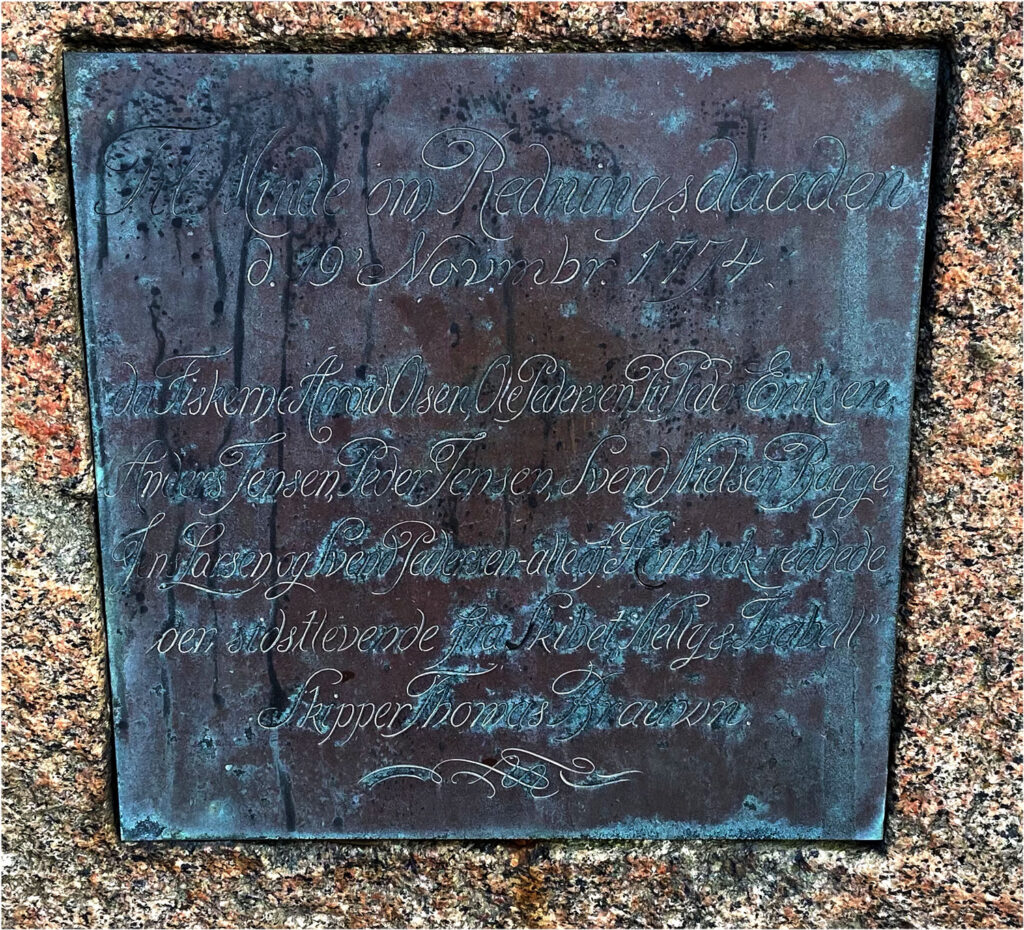 Til Minde om Redningsdaaden
d. 19' Novmbr. 1774.
da Fiskerne Arvid Olsen, Ole Pedersen Pii, Peder Eriksen,
Anders Jensen, Peder Jensen, Svend Nielsen Bagge,
Jens Larsen, og Svend Pedersen - alle af Hornbæk - reddede
den sidstlevende fra Skibet "Nelly & Isabell"
Skipper Thomas Brauwn.